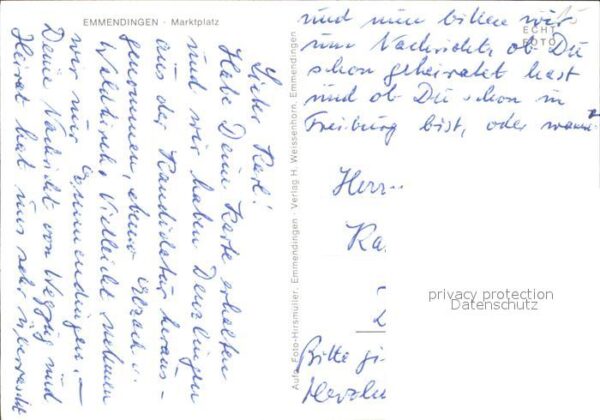 EMMENDINGEN · Marktplatz
Lieber Karl!
Habe Deine Karte erhalten
und wir haben Denzlingen
aus der Kandidatur heraus-
genommen, ebenso Elzach u.
Waldkirch. Vielleicht nehmen
wir nur Emmendingen. –
Deine Nachricht von Wegzug und
Heirat hat uns sehr überrascht
und nun bitten wir
um Nachricht, ob Du
schon geheiratet hast
und ob Du schon in
Freiburg bist, oder wann
ECHT
FOTO
Aufn. Foto-Hirsmüller, Emmendingen · Verlag H. Weissenhorn, Emmendingen
Herr
Ka
Bitte gi
Herzlu
privacy protection
Datenschutz